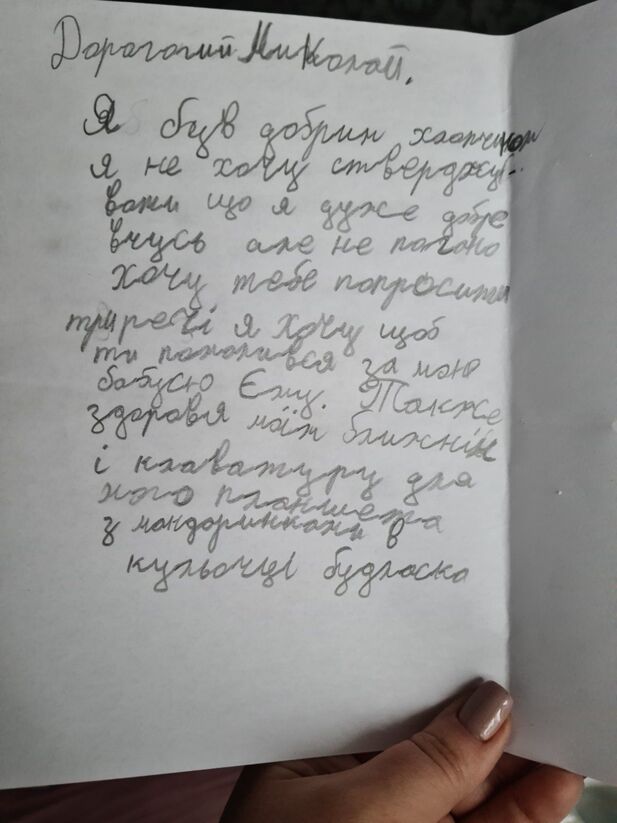 Дорагогий Миколай.
Я був добрим хлопчиком
я не хочу стверджу-
вати що я дуже добре
вчусь але не погано
хочу тебе попросити
три речі я хочу щоб
ти помолився за мою
бабусю Єму. Также
здоровя моїм ближнім
і клавіатуру для
мого планшета
з мандоринками в
кульочці будласка